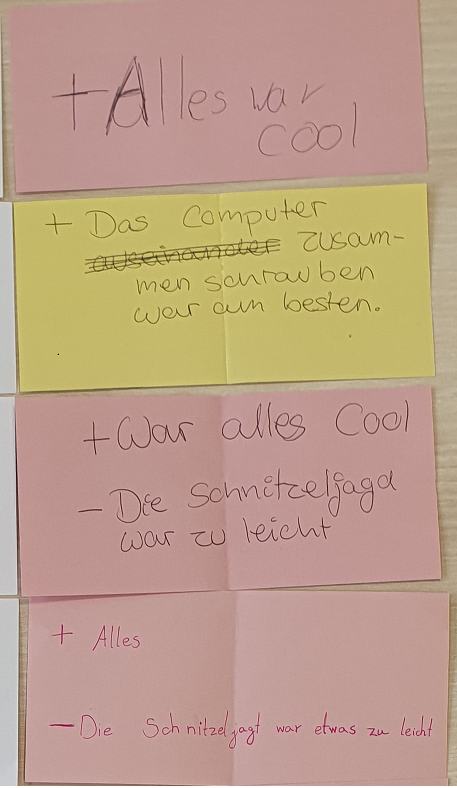 + Alles war
cool
+ Das Computer
auseinander zusam-
men schrauben
war am besten.
+ War alles Cool
- Die Schnitzeljagd
war zu leicht
+ Alles
- Die Schnitzeljagt war etwas zu leicht